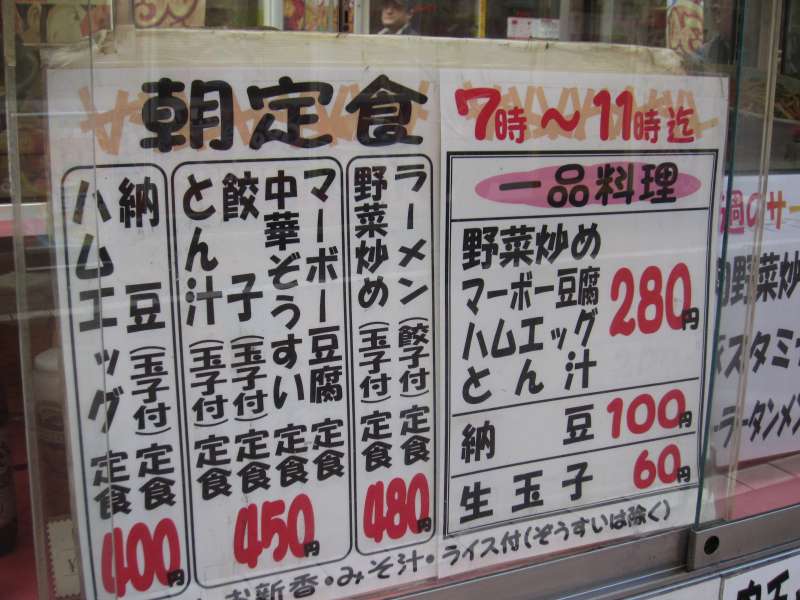 朝定食
7時〜11時迄
ラーメン(餃子付)定食
野菜炒め(玉子付)定食
480円
マーボー豆腐定食
中華ぞうすい定食
餃子(玉子付)定食
とん汁(玉子付)定食
450円
納豆(玉子付)定食
ハムエッグ定食
400円
お新香・みそ汁・ライス付(ぞうすいは除く)
一品料理
野菜炒め
マーボー豆腐
ハムエッグ
とん汁
280円
納豆 100円
生玉子 60円
週のサー
野菜炒
スタミ
ータンメン